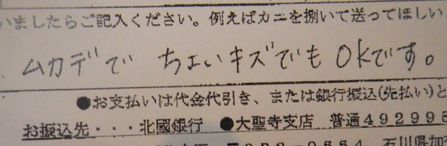 いましたらご記入ください。例えばカニを捌いて送ってほしい
ムカデで ちょいキズでもOKです。
●お支払いは代金代引き、または銀行振込(先払い)と
お振込先・・・北國銀行 ●大聖寺支店 普通49299
石川県加